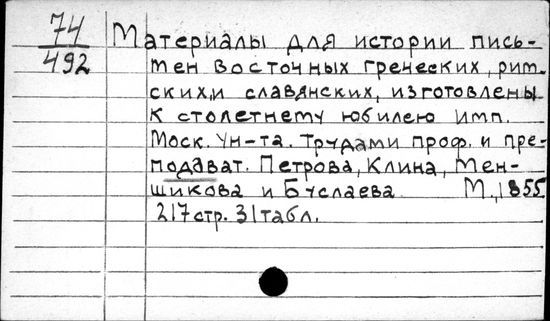 74
492
Материалы для истории пись-
мен восточных греческих, рит-
ских,и славянских, изготовлены
к столетнему юбилею имп.
Моск. Ун-та. Трудами проф. и пре-
подават. Петрова, Клина, Мен-
шикова и Буслаева. М., 1855
217 стр. 31 табл.